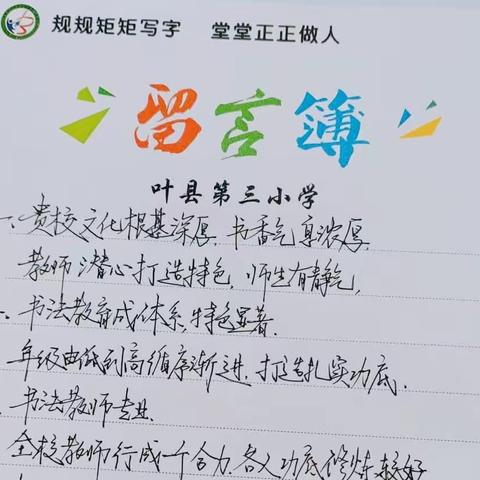 规规矩矩写字 堂堂正正做人
留言簿
叶县第三小学
一、贵校文化根基深厚，书香气息浓厚，
教师潜心打造特色，师生有静气，
、书法教育成体系，特色显著．
年级由低到高循序渐进，打造扎实功底．
书法教师专业．
全校教师形成一个合力，各人功底修炼较好